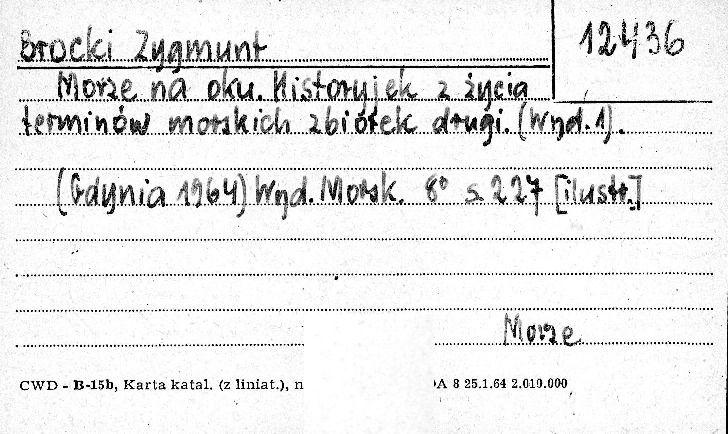 Brocki Zygmunt
12436
Morze na oku. Historyjek z życia
terminów morskich zbiórek drugi. (Wyd. 1).
(Gdynia 1964) Wyd. Morsk. 8° s. 227 [ilustr.]
Morze
CWD - B-15b, Karta katal. (z liniat.), n
A 8 25.1.64 2.010.000